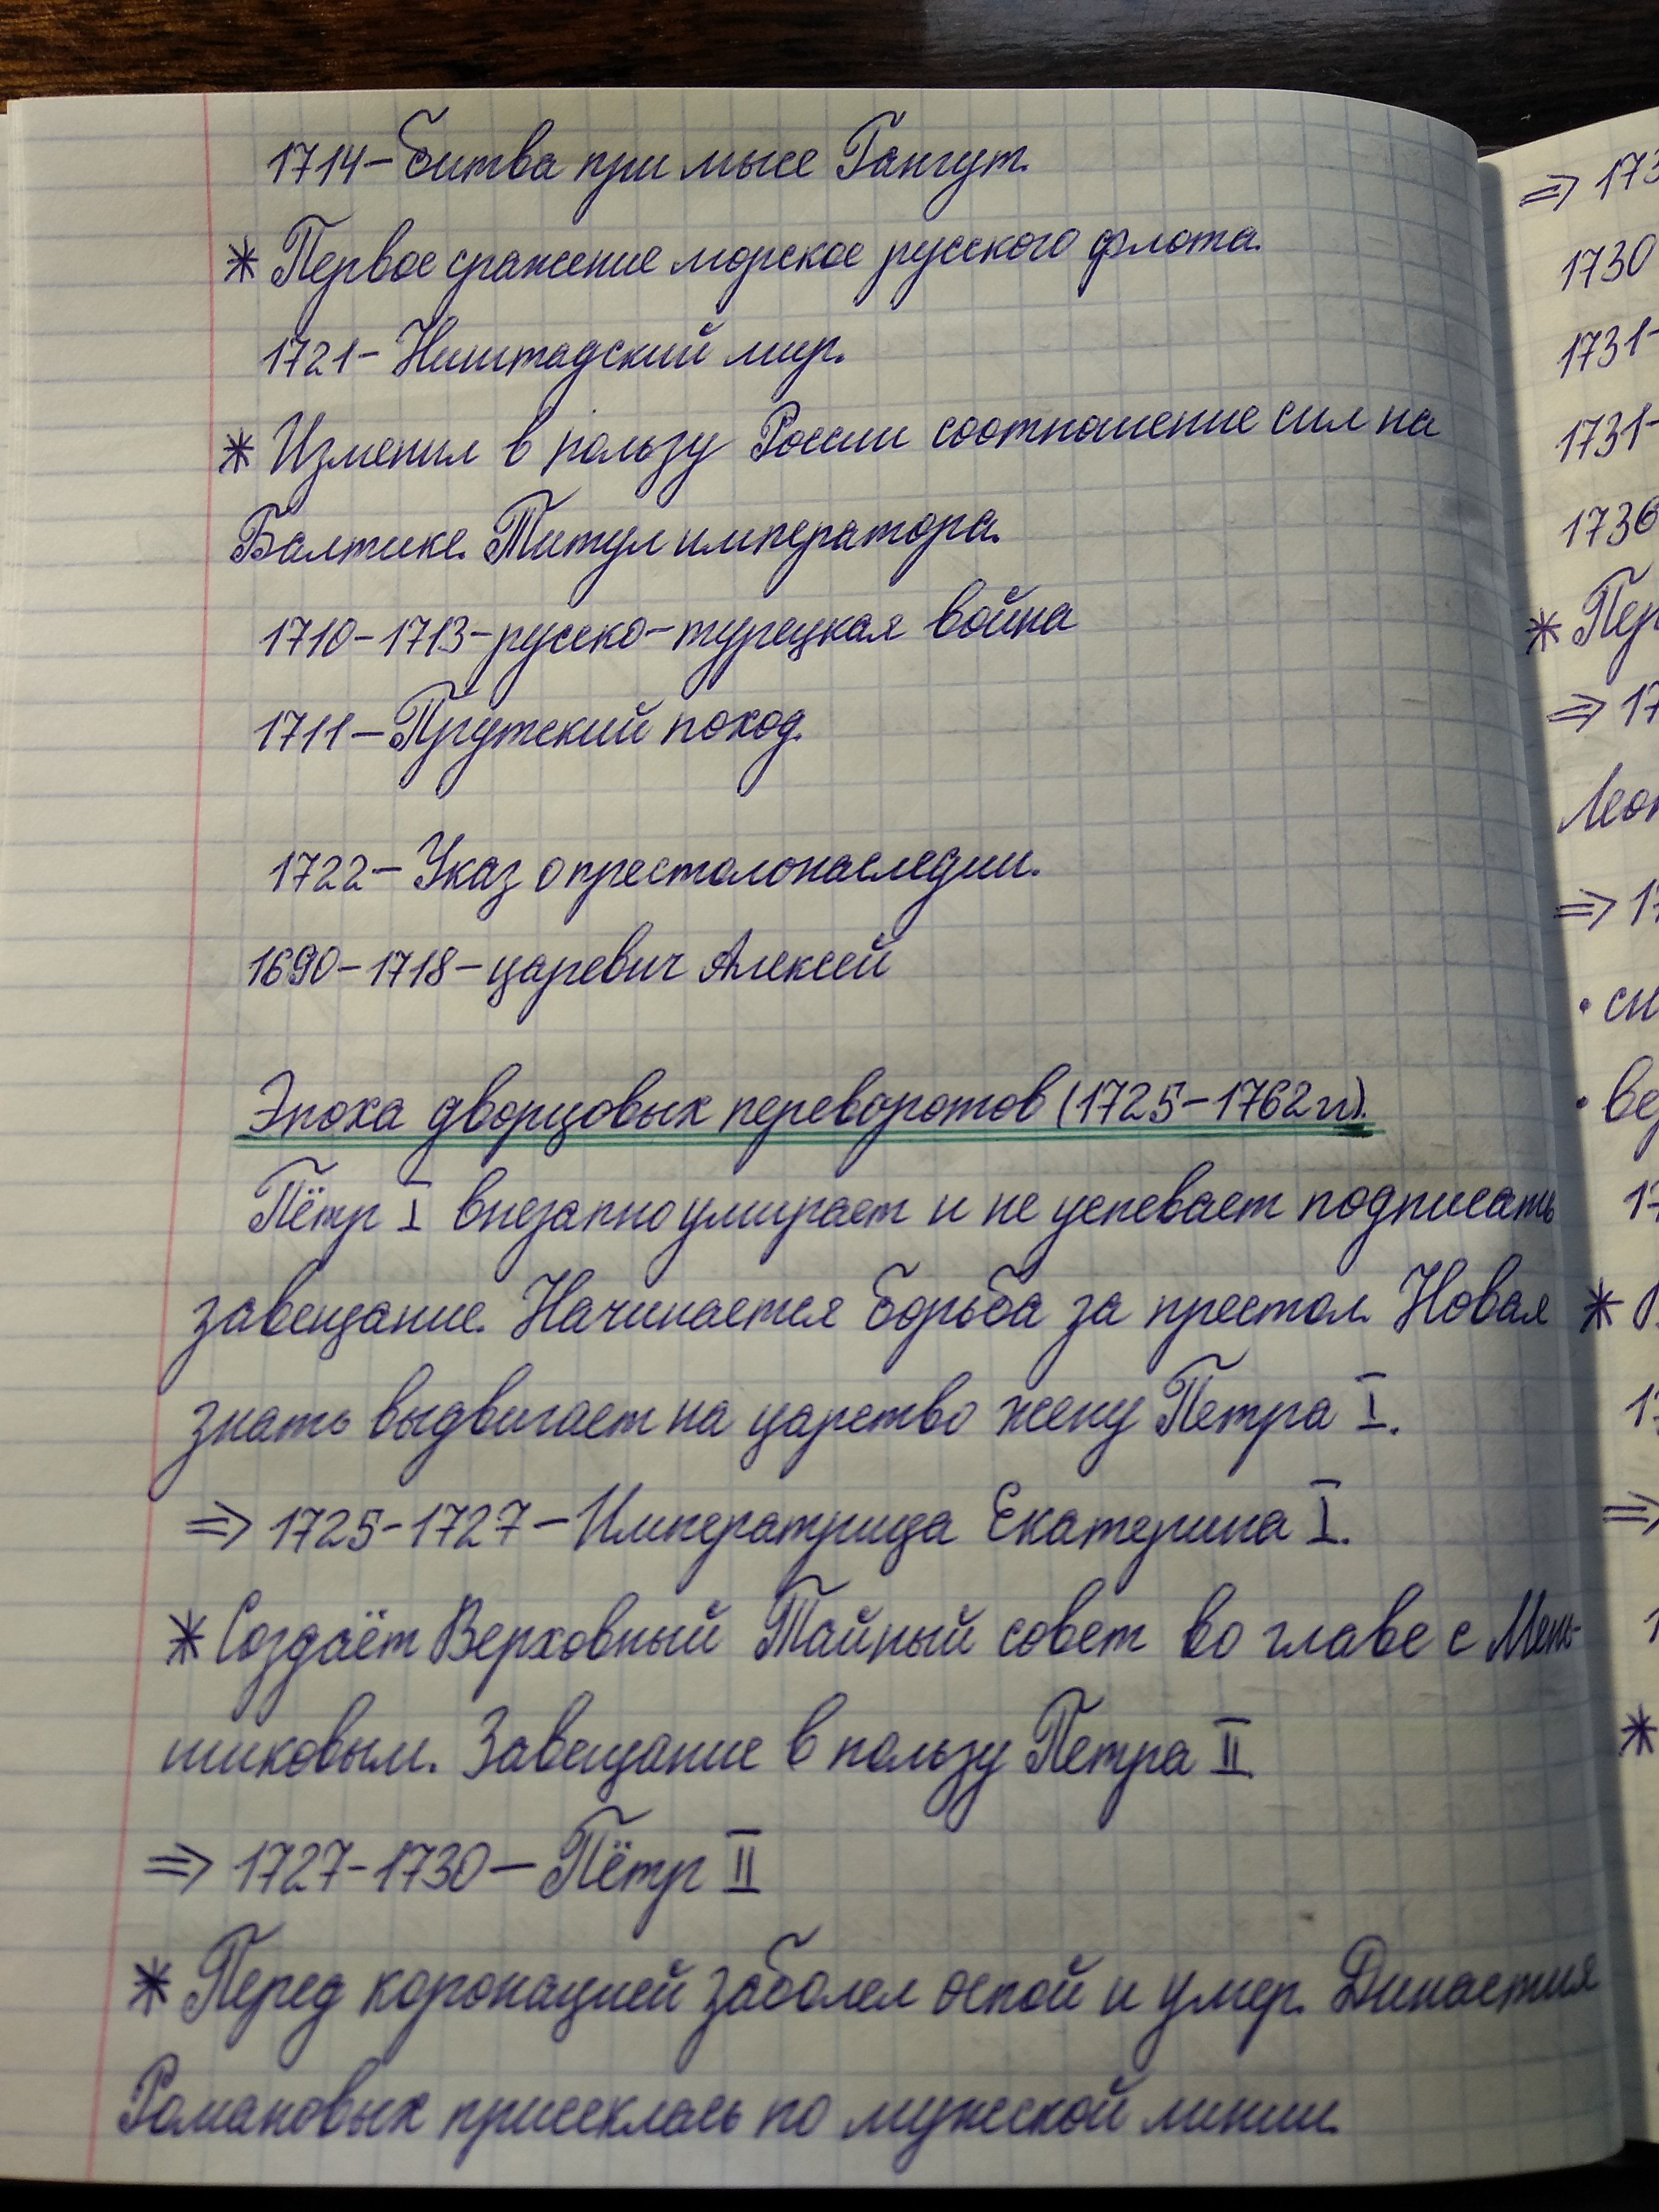 1714 – битва при мысе Гангут.
* Первое сражение морское русского флота.
1721 – Ништадский мир.
* Изменил в пользу России соотношение сил на
Балтике. Титул императора.
1710-1713 – русско-турецкая война
1711 – Прутский поход.
1722 – Указ о престолонаследии.
1690-1718 – царевич Алексей
Эпоха дворцовых переворотов (1725-1762 гг).
Пётр I внезапно умирает и не успевает подписать
завещание. Начинается борьба за престол. Новая
знать выдвигает на царство жену Петра I.
⇒ 1725-1727 – Императрица Екатерина I.
* Создаёт Верховный Тайный совет во главе с Мень-
шиковым. Завещание в пользу Петра II
⇒ 1727-1730 – Пётр II
* Перед коронацией заболел оспой и умер. Династия
Романовых присеклась по мужской линии.
⇒ 173
1730
1731-
1731-
1736
* Пер
⇒ 17
Леон
⇒ 17
• си
• ве
17
*
⇒
*